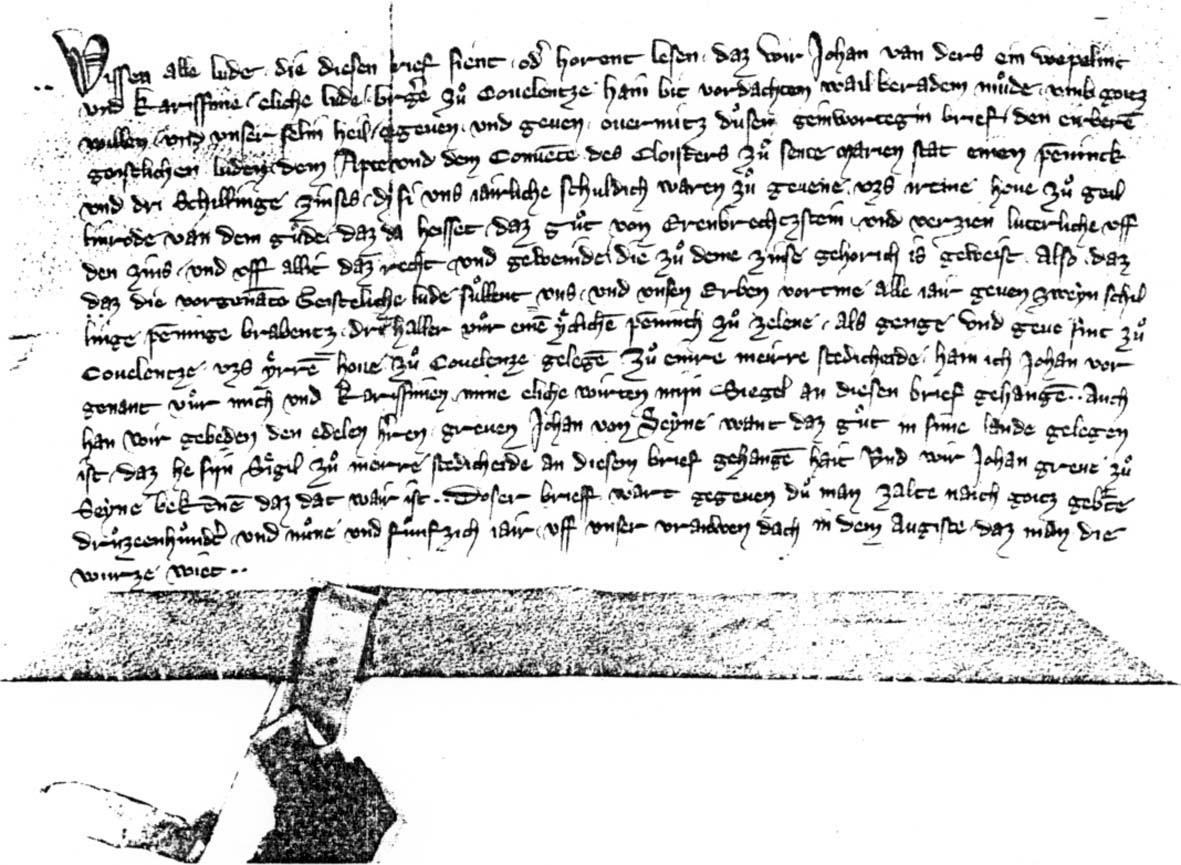 Wissen alle lude · die diesen brief sient · od' horent lesen · daz wir Johan van ders ein wepelinc
vnd karissime · eliche lude · birg'e zů Couelentze hain bit vordachten wail beradem můde · vmb gotz
willen · vnd vnser selin heil · gegeuen · vnd geuen · ouermitz důsen geinwortegin brief · den erberē
geistlichen luden · dem Apte vnd dem Conuēte des Cloisters zů sente marien stat einen pēninck
vnd dri schillinge zinses · dy si vns iairliche schuldich waren zů geuene · vzs ireine houe zů geil
linrode van dem gůde · daz da heisset · daz gůt von Erenbrechtzstein · vnd verzien luterliche vff
den zins · vnd vff allit daz recht vnd geweinde · die zů deme zinse gehorich is geweist · Also · daz
daz die vorgenāte Geisteliche lude sullent vns · vnd vnsen Erben vortme alle iair geuen zweyn schil
linge pēninge brabentz · drē haller vůr einē ẙclichē pēninch zů zelene · als genge vnd geue sint zů
Couelentze · vzs ẙrrē houe zů Couelenze gelegē zů einre meirre stedicheide · hain ich Johan vor
genant vůr mich vnd karissimen · mine eliche wirten mijn Siegel an diesen brief gehangē · · Auch
han wir gebeden den edelen h'ren · greuen Johan von Seyne · want daz gůt in sime lande gelegen
ist · daz he sijn Sigil zů meirre stedicheide an diesem brief gehangē hait Vnd wir Johan greue zů
Seyne bekēnē daz dat wair ist · · Doser brieff wart gegeuen dů man zalte naich gotz gebůrte
drůzeenhůnd't · vnd nůne vnd fůnfzich iair · vff vnser vrauwen dach in dem Augiste · daz man die
wurze wiet · ·